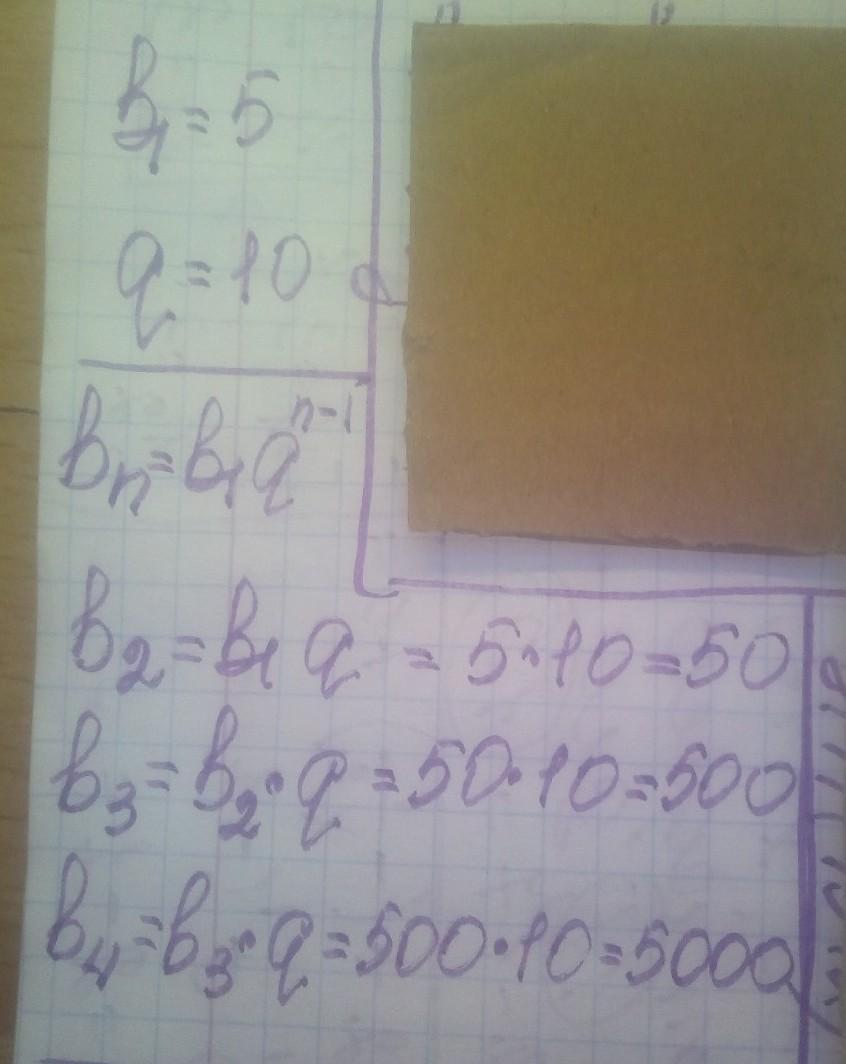 b₁ = 5
q = 10
bₙ = b₁qⁿ⁻¹
b₂ = b₁ q = 5·10 = 50
b₃ = b₂·q = 50·10 = 500
b₄ = b₃·q = 500·10 = 5000